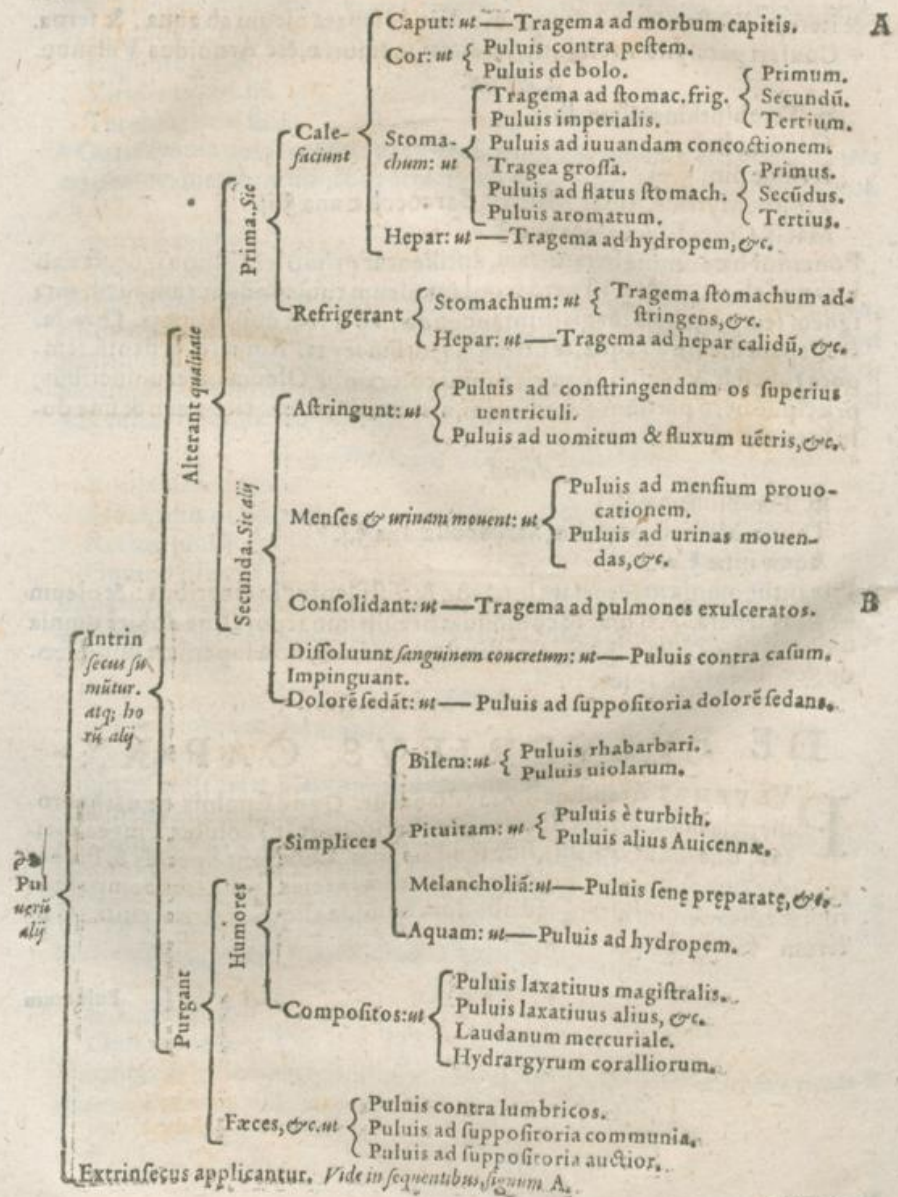 Caput: ut — Tragema ad morbum capitis. A
Cor: ut { Puluis contra peſtem.
Puluis de bolo.
Cale-
faciunt
Stoma-
chum: ut
Tragema ad ſtomac. frig. { Primum.
Secundũ.
Tertium.
Puluis imperialis.
Puluis ad iuuandam concoctionem.
Tragea groſſa.
Puluis ad flatus ſtomach. { Primus.
Secũdus.
Tertius.
Puluis aromatum.
Hepar: ut — Tragema ad hydropem, &c.
Prima. Sic
Refrigerant { Stomachum: ut { Tragema ſtomachum ad-
ſtringens, &c.
Hepar: ut — Tragema ad hepar calidũ, &c.
Alterant qualitate
Aſtringunt: ut { Puluis ad conſtringendum os ſuperius
uentriculi.
Puluis ad uomitum & fluxum uẽtris, &c.
Menſes & urinam mouent: ut { Puluis ad menſium prouo-
cationem.
Puluis ad urinas mouen-
das, &c.
Secunda. Sic alij
Conſolidant: ut — Tragema ad pulmones exulceratos. B
Diſſoluunt ſanguinem concretum: ut — Puluis contra caſum.
Impinguant.
Dolorẽ ſedãt: ut — Puluis ad ſuppoſitoria dolorẽ ſedans.
Intrin
ſecus ſu
mũtur.
atq; ho
rũ alij
Bilem: ut { Puluis rhabarbari.
Puluis uiolarum.
Simplices
Pituitam: ut { Puluis è turbith.
Puluis alius Auicennæ.
Melancholiã: ut — Puluis ſenę preparatę, &c.
Aquam: ut — Puluis ad hydropem.
Humores
Purgant
Compoſitos: ut { Puluis laxatiuus magiſtralis.
Puluis laxatiuus alius, &c.
Laudanum mercuriale.
Hydrargyrum coralliorum.
Fæces, &c. ut { Puluis contra lumbricos.
Puluis ad ſuppoſitoria communia.
Puluis ad ſuppoſitoria auctior.
Pul
uerũ
alij
Extrinſecus applicantur. Vide in ſequentibus, ſignum A.